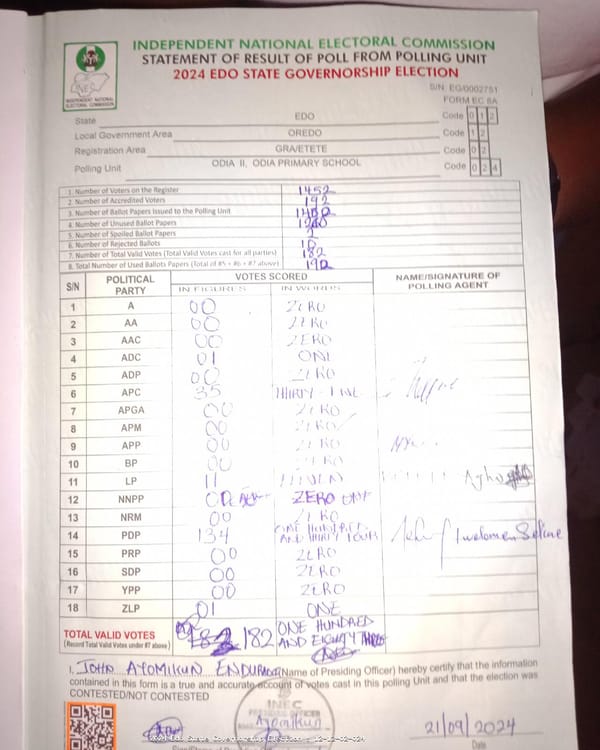 INDEPENDENT NATIONAL ELECTORAL COMMISSION
STATEMENT OF RESULT OF POLL FROM POLLING UNIT
2024 EDO STATE GOVERNORSHIP ELECTION
INEC
INDEPENDENT NATIONAL ELECTORAL COMMISSION
S/N: EG/0002751
FORM EC 8A
State EDO Code 0 1 2
Local Government Area OREDO Code 1 2
Registration Area GRA/ETETE Code 0 2
Polling Unit ODIA II, ODIA PRIMARY SCHOOL Code 0 2 4
1. Number of Voters on the Register 1452
2. Number of Accredited Voters 192
3. Number of Ballot Papers Issued to the Polling Unit
4. Number of Unused Ballot Papers
5. Number of Spoiled Ballot Papers 2
6. Number of Rejected Ballots 10
7. Number of Total Valid Votes (Total Valid Votes cast for all parties) 182
8. Total Number of Used Ballots Papers (Total of #5 + #6 + #7 above)
S/N POLITICAL PARTY VOTES SCORED NAME/SIGNATURE OF POLLING AGENT
IN FIGURES IN WORDS
1 A 00 ZERO
2 AA 00 ZERO
3 AAC 00 ZERO
4 ADC 01 ONE
5 ADP 00 ZERO
6 APC 35 THIRTY-FIVE
7 APGA 00 ZERO
8 APM 00 ZERO
9 APP 00 ZERO
10 BP 00 ZERO
11 LP 11
12 NNPP ZERO
13 NRM 00 ZERO
14 PDP 134 ONE HUNDRED AND THIRTY FOUR
15 PRP 00 ZERO
16 SDP 00 ZERO
17 YPP 00 ZERO
18 ZLP 01 ONE
TOTAL VALID VOTES 182 ONE HUNDRED
(Record Total Valid Votes under #7 above) AND EIGHTY
I, JOHN AYOMIKUN (Name of Presiding Officer) hereby certify that the information
contained in this form is a true and accurate account of votes cast in this polling Unit and that the election was
CONTESTED/NOT CONTESTED
INEC
PRESIDING OFFICER
Ayomikun
21/09/2024
Date